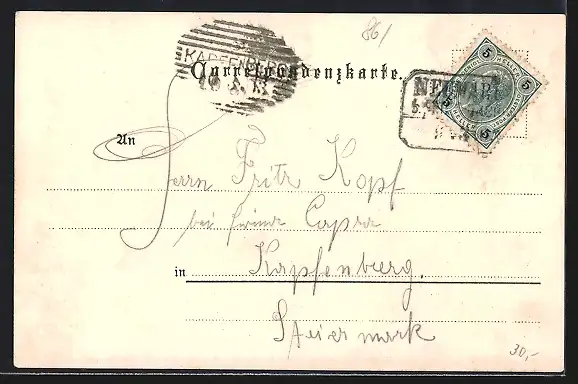 86/
KAPFENBERG
Correspondenzkarte.
5 HELLER 5
NEUMARKT
5 HELLER 5
An
Herrn Fritz Kopf
bei Firma Capra
in Kapfenberg.
Steiermark
30,-